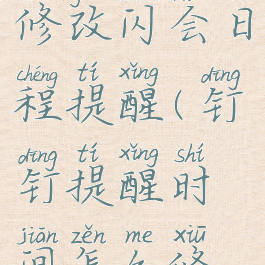 修改闪会日
chéng tí xǐng dīng
程提醒(钉
dīng tí xǐng shí
钉提醒时
jiān zěn me xiū
间怎么修